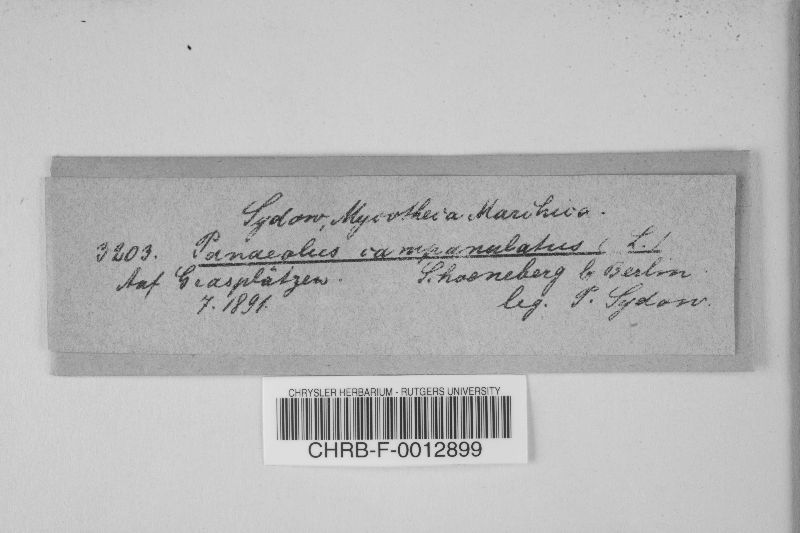 Sydow, Mycotheca Marchica.
3203. Panaeolus campanulatus (L.)
Auf Grasplätzen. Schoeneberg b. Berlin.
7. 1891. leg. P. Sydow.
CHRYSLER HERBARIUM - RUTGERS UNIVERSITY
CHRB-F-0012899